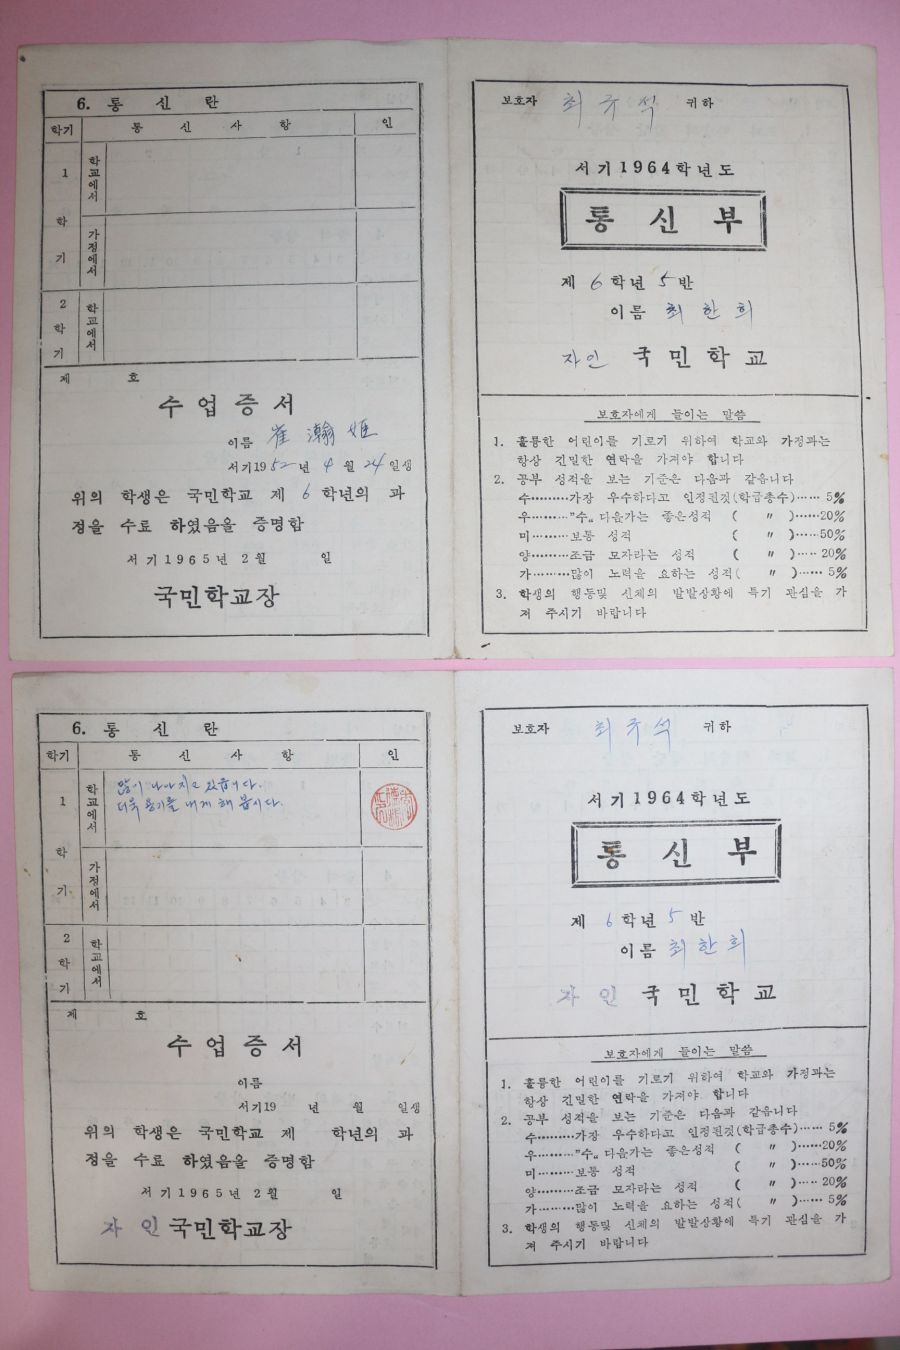 6. 통 신 란
학기 통 신 사 항 인
1 학교에서
학
기 가정에서
2 학교에서
학
기
제 호
수 업 증 서
이름 崔 瀚 姬
서기1952년 4월 24일생
위의 학생은 국민학교 제 6 학년의 과
정을 수료 하였음을 증명함
서 기 1 9 6 5 년 2 월 일
국민학교장
보호자 최 규 석 귀하
서 기 1 9 6 4 학 년 도
통 신 부
제 6 학년 5 반
이름 최 한 희
자인 국 민 학 교
보호자에게 들이는 말씀
1. 훌륭한 어린이를 기르기 위하여 학교와 가정과는
항상 긴밀한 연락을 가져야 합니다
2. 공부 성적을 보는 기준은 다음과 같읍니다
수………가장 우수하다고 인정된것(학급총수)…… 5%
우………"수„ 다음가는 좋은성적 ( 〃 )……20%
미………보통 성적 ( 〃 )……50%
양………조금 모자라는 성적 ( 〃 )…‥ 20%
가………많이 노력을 요하는 성적( 〃 )…… 5%
3. 학생의 행동및 신체의 발발상황에 특기 관심을 가
저 주시기 바랍니다
6. 통 신 란
학기 통 신 사 항 인
1 학교에서 많이 나아지고 있읍니다.
더욱 용기를 내게 해 봅시다.
학
기 가정에서
2 학교에서
학
기
제 호
수 업 증 서
이름
서기19 년 월 일생
위의 학생은 국민학교 제 학년의 과
정을 수료 하였음을 증명함
서 기 1 9 6 5 년 2 월 일
자 인 국민학교장
보호자 최 규 석 귀하
서 기 1 9 6 4 학 년 도
통 신 부
제 6 학년 5 반
이름 최 한 희
자 인 국 민 학 교
보호자에게 들이는 말씀
1. 훌륭한 어린이를 기르기 위하여 학교와 가정과는
항상 긴밀한 연락을 가져야 합니다
2. 공부 성적을 보는 기준은 다음과 같읍니다
수………가장 우수하다고 인정된것(학급총수)…… 5%
우………"수„ 다음가는 좋은성적 ( 〃 )……20%
미………보통 성적 ( 〃 )……50%
양………조금 모자라는 성적 ( 〃 )…‥ 20%
가………많이 노력을 요하는 성적( 〃 )…… 5%
3. 학생의 행동및 신체의 발발상황에 특기 관심을 가
저 주시기 바랍니다